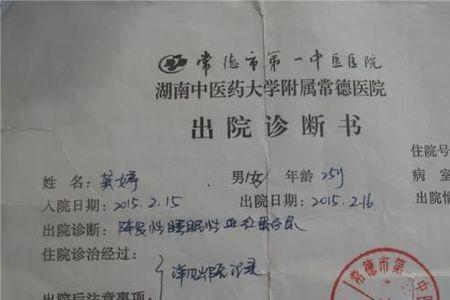 常德市第一中医医院
湖南中医药大学附属常德医院
出院诊断书
住院号
姓 名：龚婷 男/女 年龄 25岁 病 室
入院日期：2015.2.15 出院日期：2015.2.16 出院情
出院诊断：阵发性睡眠性血红蛋白尿
住院诊治经过：
详见出院记录
出院后注意事项：
常德市第一中